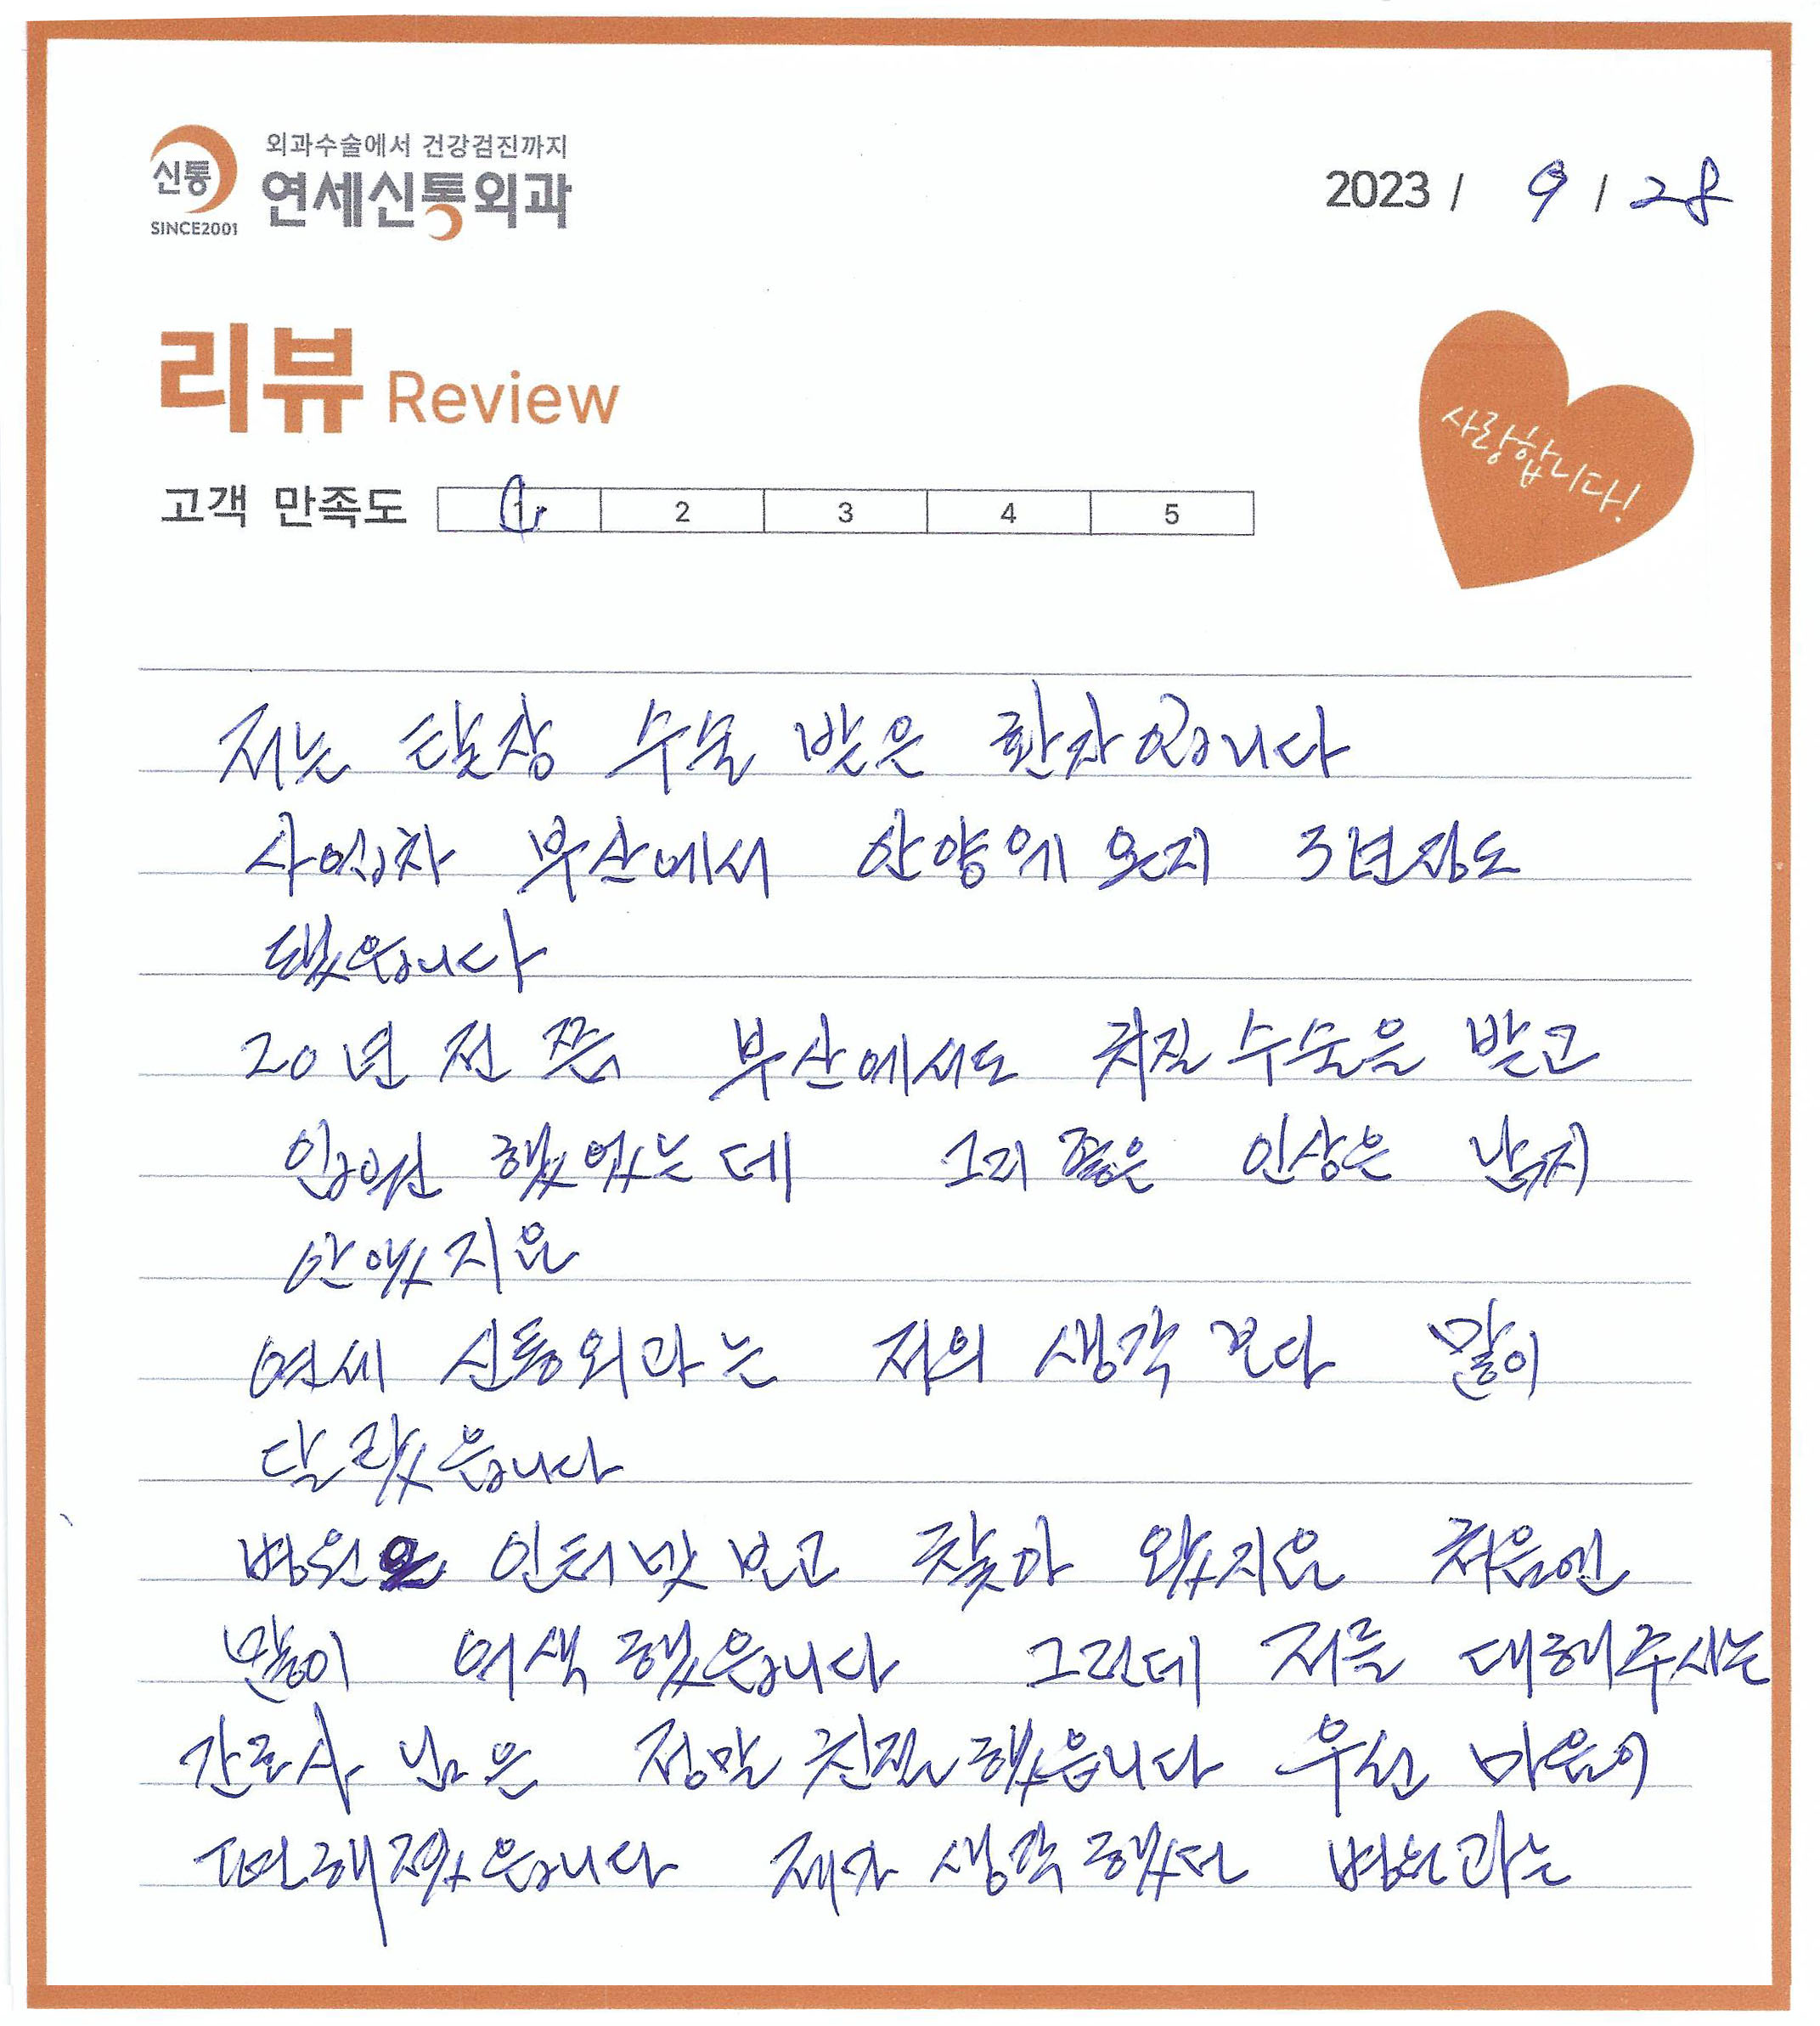 외과수술에서 건강검진까지
신통 연세신통외과
SINCE2001
2023 / 9 / 28
리뷰 Review
사랑합니다!
고객 만족도 1 2 3 4 5
저는 탈장 수술 받은 환자입니다
사업차 부산에서 안양에 온지 3년정도
됐읍니다
20년 전 쯤 부산에서도 치질 수술을 받고
입원 했었는데 그리 좋은 인상은 남지
안았지요
연세 신통외과는 저의 생각 보다 많이
달랐읍니다
병원은 인터넷 보고 찾아 왔지요 처음엔
많이 어색 했읍니다 그런데 저를 대해주시는
간호사 님은 정말 친절했읍니다 우선 마음이
편해졌읍니다 제가 생각 했던 병원과는